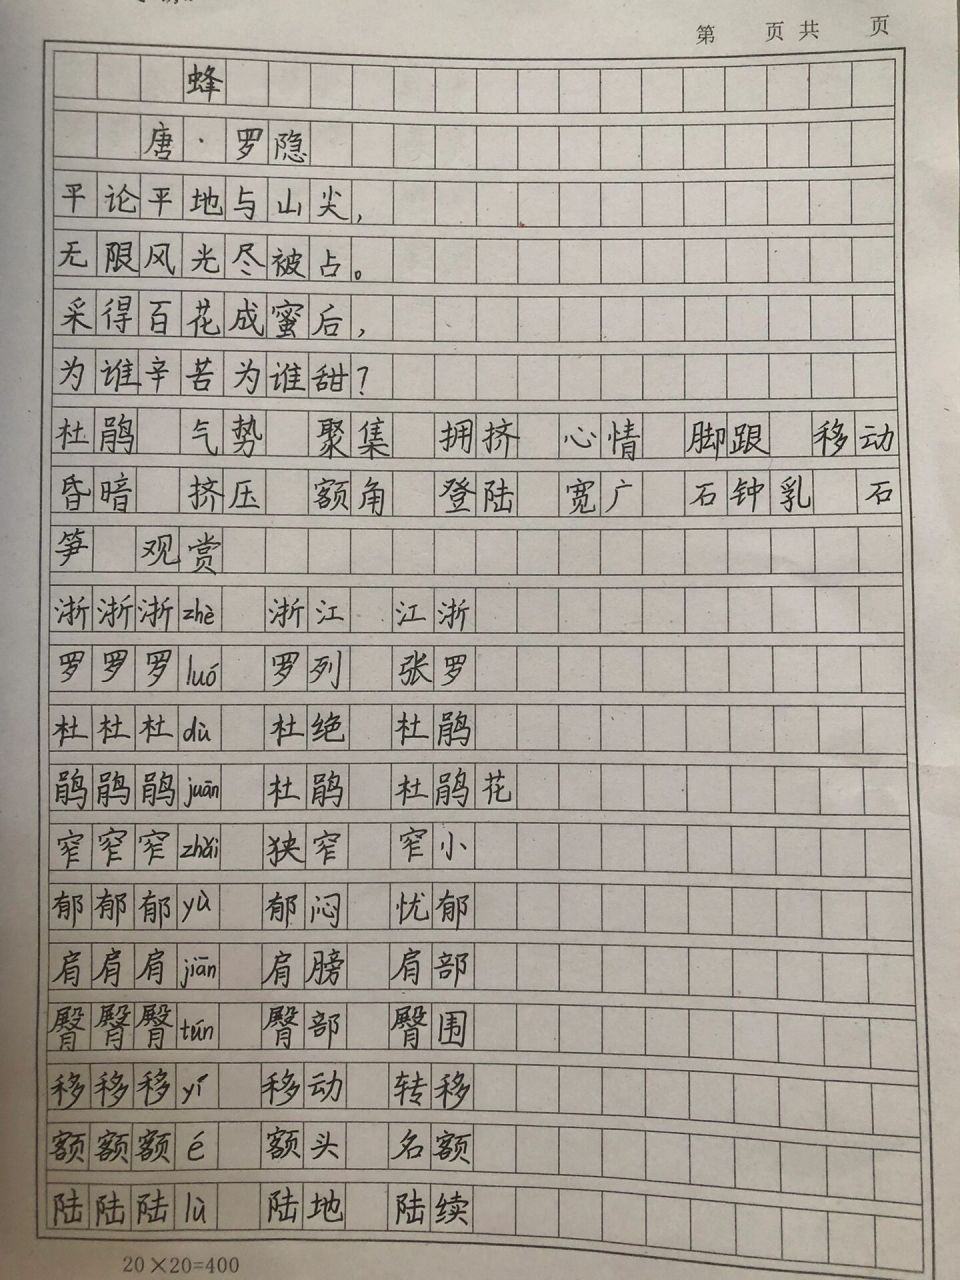 第 页 共 页
蜂
唐·罗隐
平论平地与山尖，
无限风光尽被占。
采得百花成蜜后，
为谁辛苦为谁甜？
杜鹃 气势 聚集 拥挤 心情 脚跟 移动
昏暗 挤压 额角 登陆 宽广 石钟乳 石
笋 观赏
浙浙浙zhè 浙江 江浙
罗罗罗luó 罗列 张罗
杜杜杜dù 杜绝 杜鹃
鹃鹃鹃juān 杜鹃 杜鹃花
窄窄窄zhǎi 狭窄 窄小
郁郁郁yù 郁闷 忧郁
肩肩肩jiān 肩膀 肩部
臀臀臀tún 臀部 臀围
移移移yí 移动 转移
额额额é 额头 名额
陆陆陆lù 陆地 陆续
20×20=400